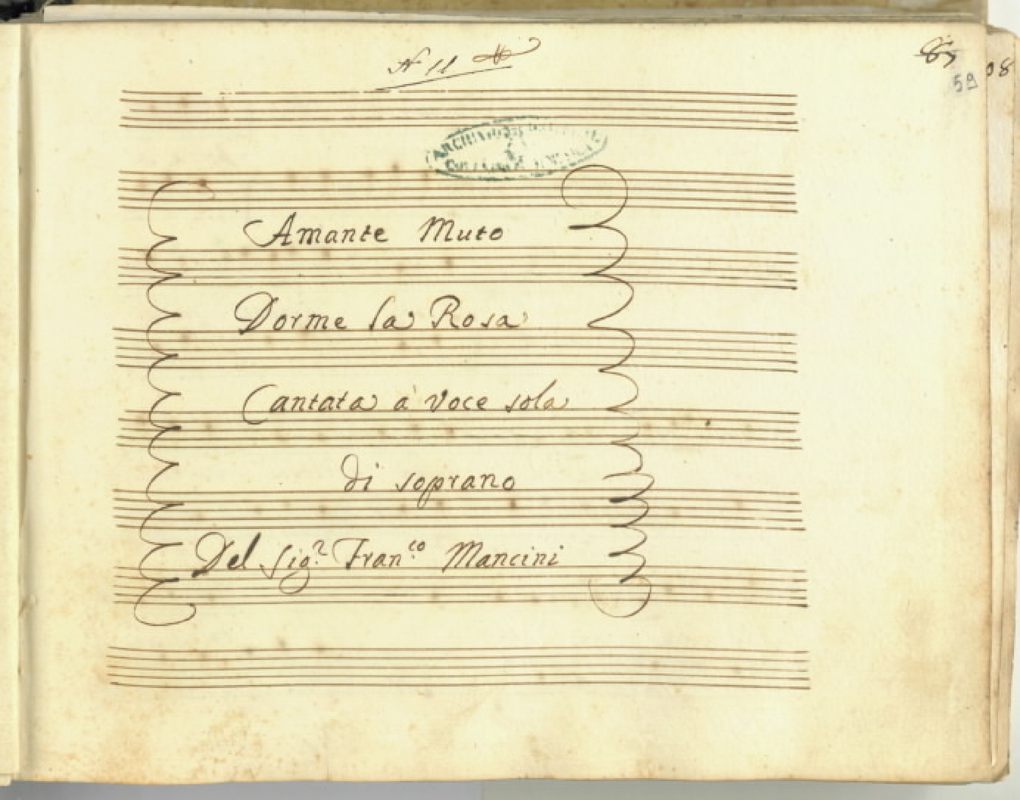 N 11
59
08
ARCHIVIO
Amante Muto
Dorme la Rosa
Cantata à voce sola
di soprano
Del Sig.r Fran.co Mancini